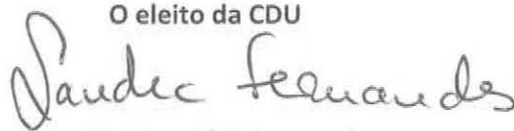 O eleito da CDU
Sandra Fernandes